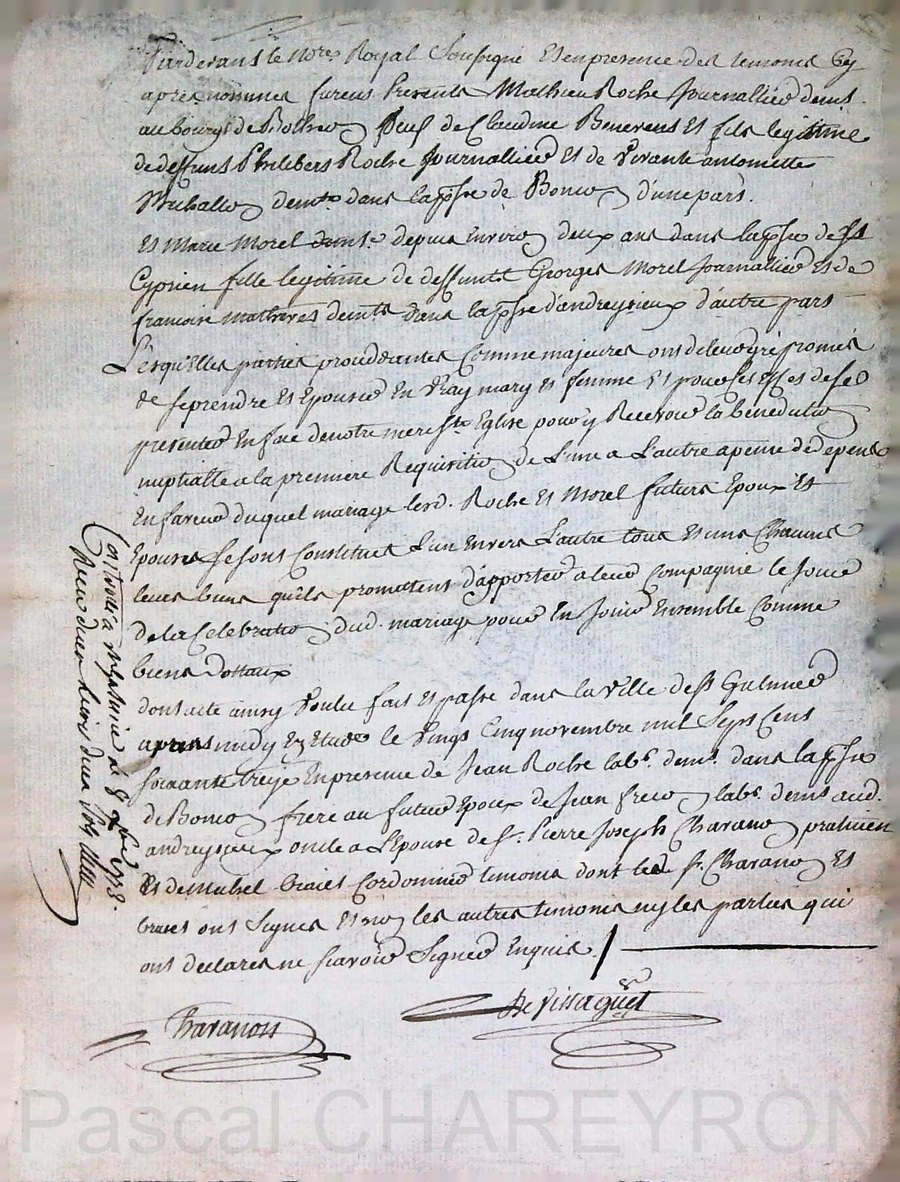 Pardevant le nore Royal Soussigné Et en presence des temoins Cy
apres nommes furent Presents Mathieu Roche Journallier demt.
au bourg de veuf de Claudine Benevent Et fils legitime
de deffunt Philibert Roche Journallier Et de vivante antoinette
demte dans la psse de Bonso d'une part.
Et Marie Morel demte depuis Environ deux ans dans la psse de St
Cyprien fille legitime de deffunt George Morel Journallier Et de
francoise demte dans la psse d'andreysieux d'autre part
Lesquelles parties proceddantes Comme majeures ont de leur gré promis
de se prendre Et Epouser En vray mary Et femme Et pour cet effet de se
presenter En face de notre mere Ste Eglise pour y Recevoir la benediction
nuptialle a la premiere Requisition de L'une a L'autre a peine de depens
En faveur duquel mariage lesd. Roche Et Morel futurs Epoux Et
Epouse se sont Constitués L'un Envers L'autre tous Et uns Chacuns
leurs biens qu'ils promettent d'apporter a leur Compagnie le Jour
de la Celebration dud. mariage pour En Jouir Ensemble Comme
biens dottaux
dont acte ainsy voulu fait Et passé dans la ville de St Galmier
apres midy En Etude le vingt Cinq novembre mil Sept Cent
soixante treize En presence de Jean Roche labr. demt. dans la psse
de Bonso frere au futur Epoux de Jean labr. demt aud.
andreysieux oncle a L'Epouse de Sr. Pierre Joseph Charanon praticien
Et de Michel Cordonnier temoins dont led Sr. Charanon Et
ont Signé Et non les autres temoins ny les parties qui
ont declaré ne scavoir Signer Enquis.
Charanon
De Vissaguet
Controllé a St Galmier le 8
Reçu
Pascal CHAREYRON